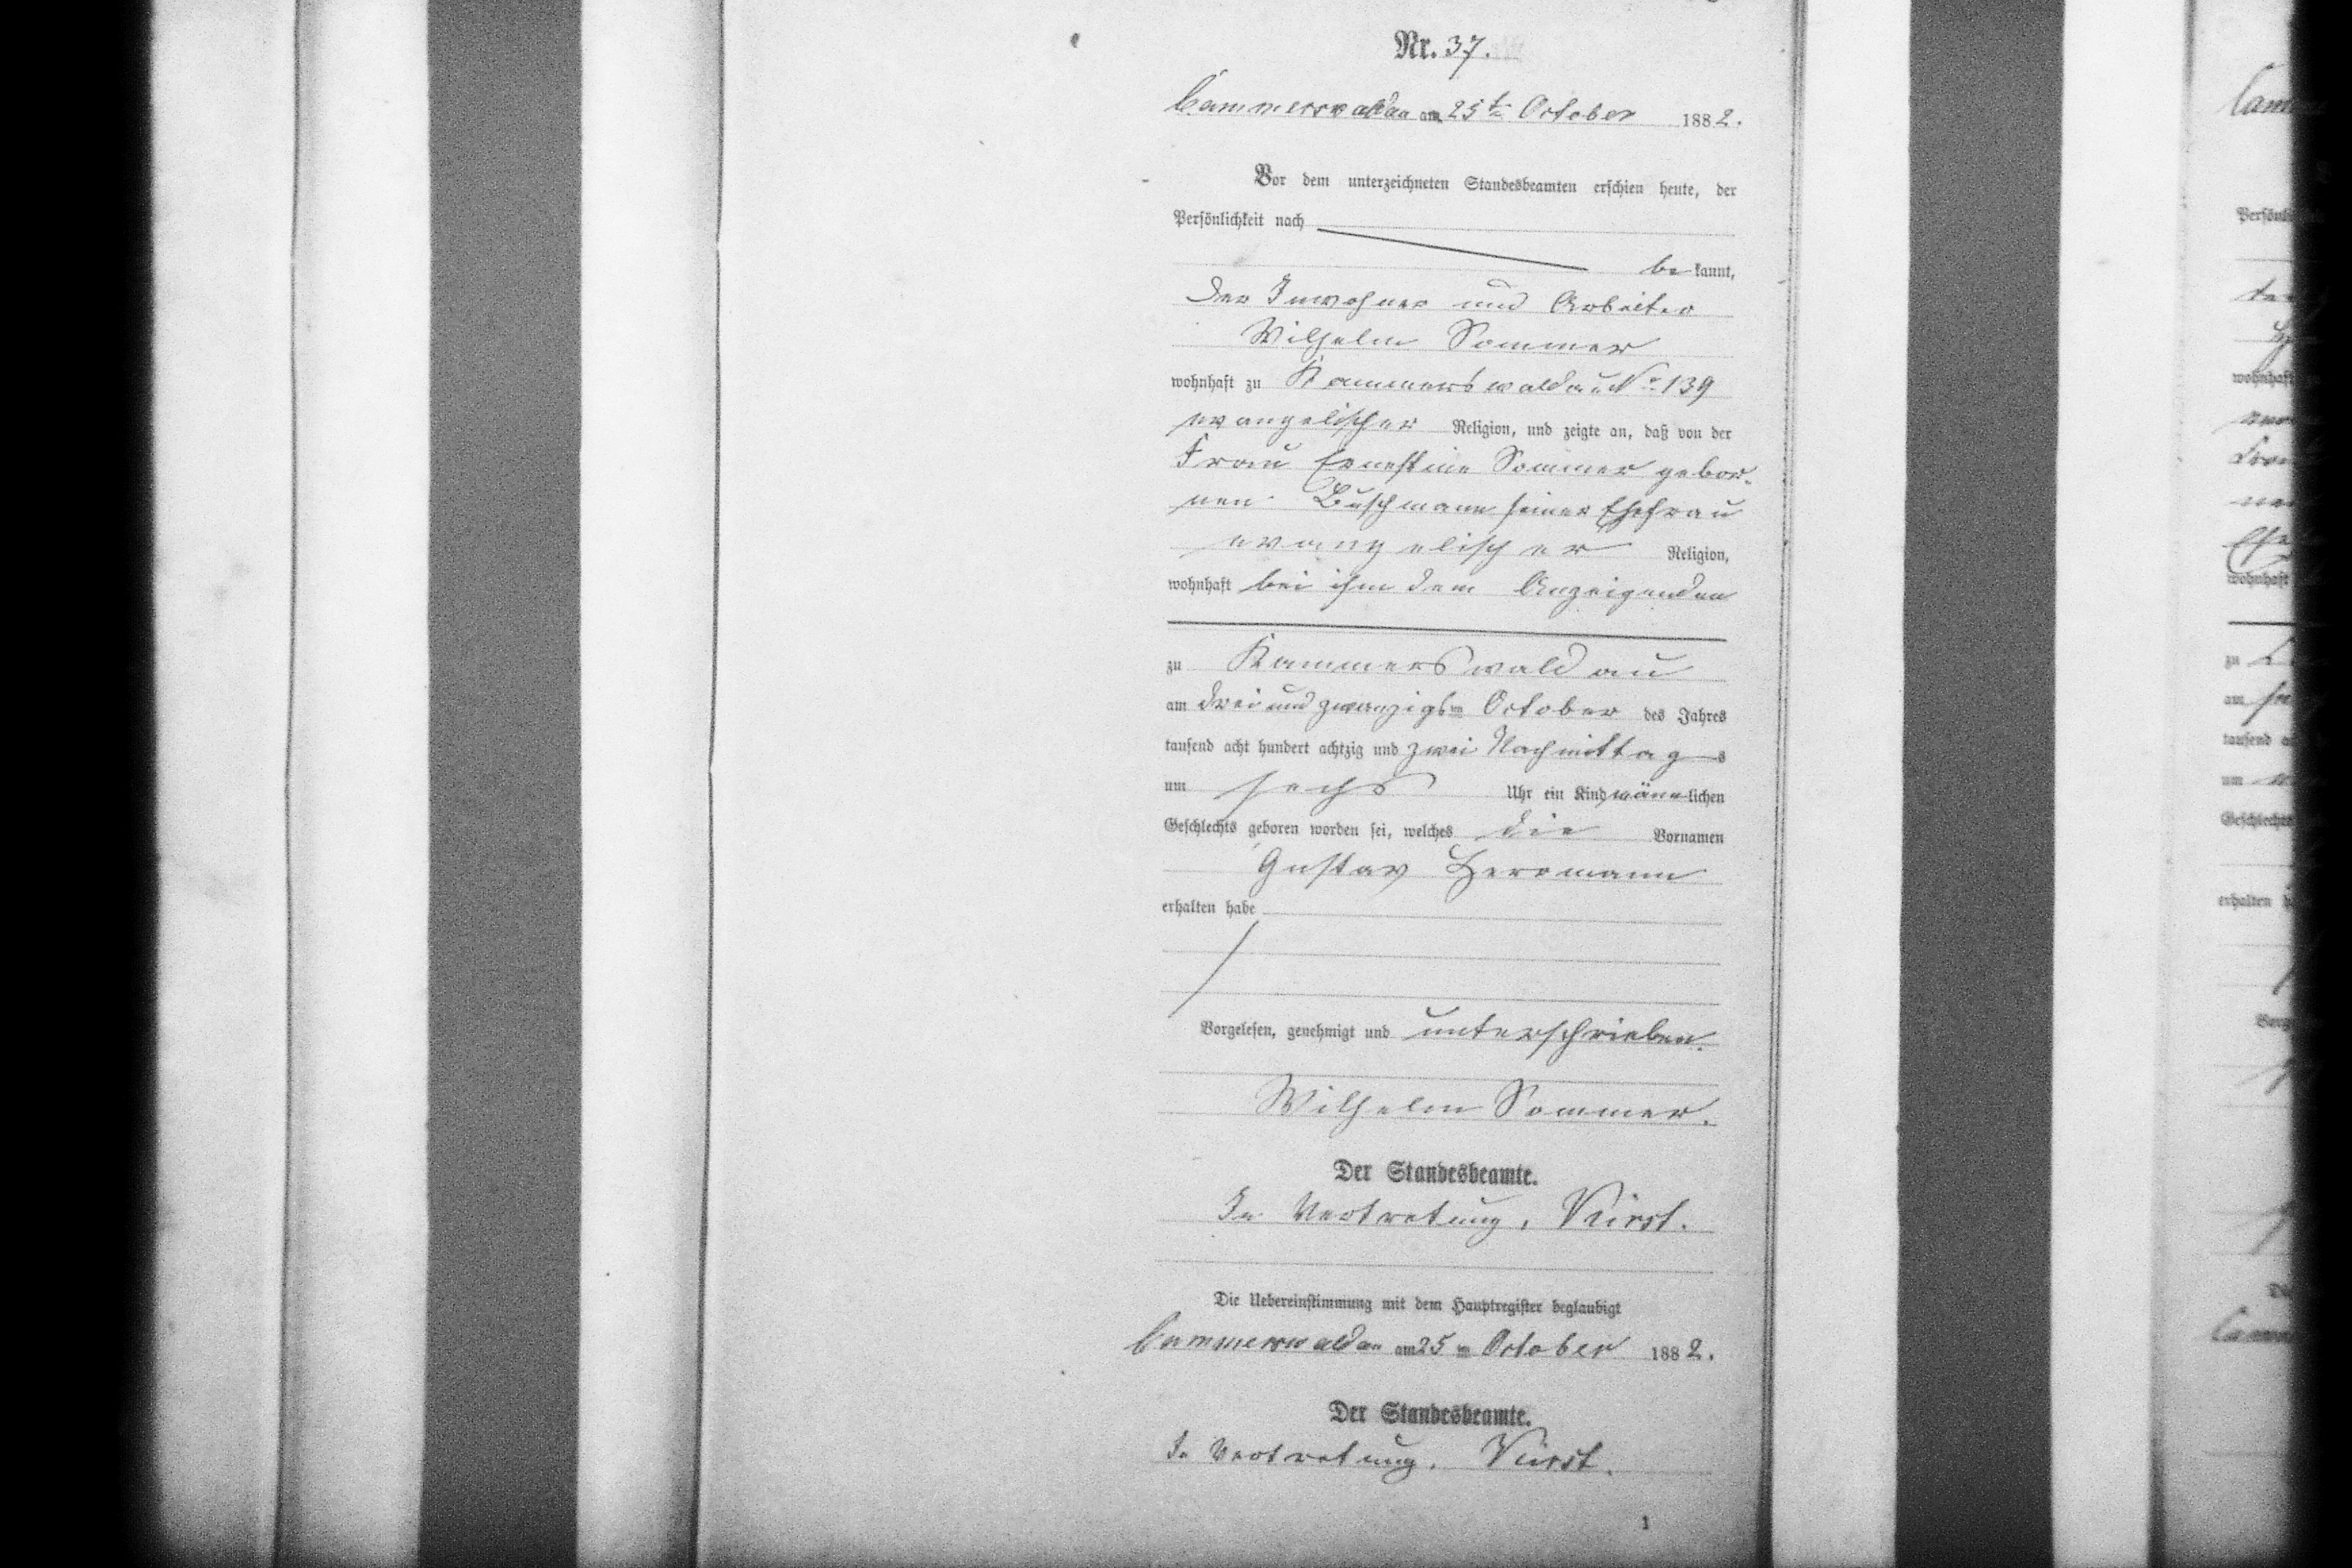 Nr. 37.
Cammerswaldau am 25ten October 1882.
Vor dem unterzeichneten Standesbeamten erschien heute, der
Persönlichkeit nach
be kannt,
der Inwohner und Arbeiter
Wilhelm Sommer
wohnhaft zu Kammerswaldau No 139
evangelischer Religion, und zeigte an, daß von der
Frau Ernestine Sommer gebor-
nen Buschmann seiner Ehefrau
evangelischer Religion,
wohnhaft bei ihm dem Anzeigenden
zu Kammerswaldau
am drei und zwanzigsten October des Jahres
tausend acht hundert achtzig und zwei Nachmittags
um sechs Uhr ein Kind männlichen
Geschlechts geboren worden sei, welches die Vornamen
Gustav Herrmann
erhalten habe
Vorgelesen, genehmigt und unterschrieben.
Wilhelm Sommer.
Der Standesbeamte.
In Vertretung,
Die Uebereinstimmung mit dem Hauptregister beglaubigt
Cammerswaldau am 25ten October 1882.
Der Standesbeamte.
In Vertretung.
1